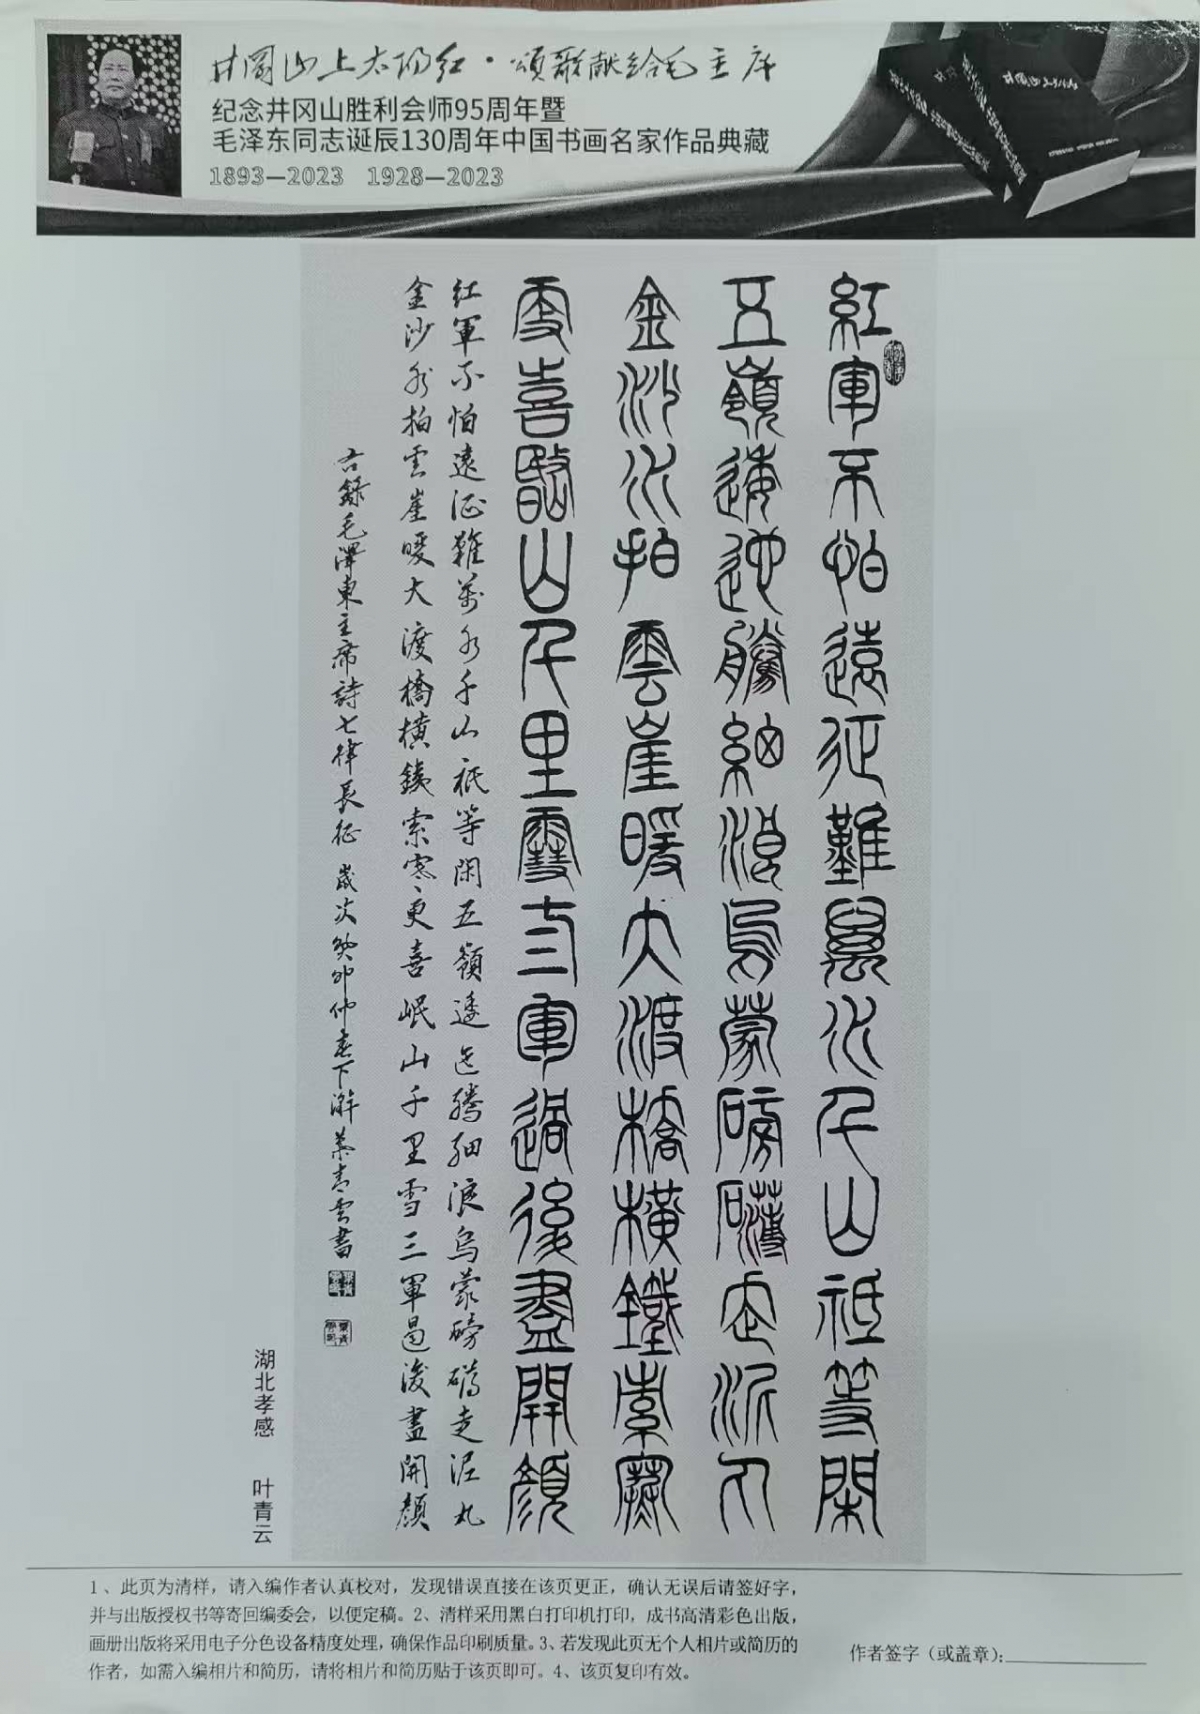 井冈山上太阳红·颂歌献给毛主席
纪念井冈山胜利会师95周年暨
毛泽东同志诞辰130周年中国书画名家作品典藏
1893—2023 1928—2023
紅軍不怕遠征難萬水千山祗等閑
五嶺逶迤騰細浪烏蒙磅礴走泥丸
金沙水拍雲崖暖大渡橋橫鐵索寒
更喜岷山千里雪三軍過後盡開顏
紅軍不怕遠征難萬水千山祗等閑五嶺逶迤騰細浪烏蒙磅礴走泥丸
金沙水拍雲崖暖大渡橋橫鐵索寒更喜岷山千里雪三軍過後盡開顏
右錄毛澤東主席詩七律長征 歲次癸卯仲春下澣葉青雲書
湖北孝感 叶青云
1、此页为清样，请入编作者认真校对，发现错误直接在该页更正，确认无误后请签好字，
并与出版授权书等寄回编委会，以便定稿。2、清样采用黑白打印机打印，成书高清彩色出版，
画册出版将采用电子分色设备精度处理，确保作品印刷质量。3、若发现此页无个人相片或简历的
作者，如需入编相片和简历，请将相片和简历贴于该页即可。4、该页复印有效。
作者签字（或盖章）：